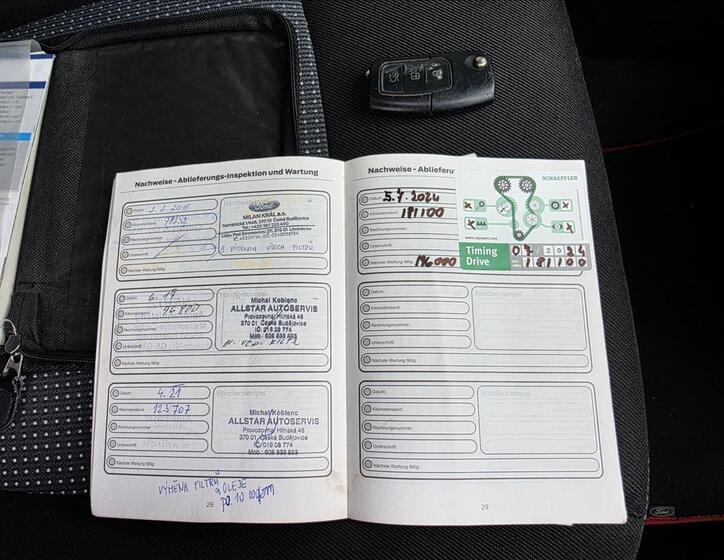 Nachweise - Ablieferungs-Inspektion und Wartung
Datum:
Kilometerstand:
Rechnungsnummer:
Unterschrift:
Nächste Wartung fällig:
Händlerstempel
Ford
MILAN KRÁL a.s.
S VÝMĚNOU VŠECH FILTRŮ
Datum: 6.19
Kilometerstand: 96 800
Rechnungsnummer:
Unterschrift:
Nächste Wartung fällig:
Händlerstempel
Michal Koblenc
ALLSTAR AUTOSERVIS
Provozovna: Hlinská 48
370 01 České Budějovice
Mob.: 608 833 823
Datum: 4.21
Kilometerstand: 123 707
Rechnungsnummer:
Unterschrift:
Nächste Wartung fällig:
Händlerstempel
Michal Koblenc
ALLSTAR AUTOSERVIS
Provozovna: Hlinská 48
370 01 České Budějovice
Mob.: 608 833 823
VÝMĚNA FILTRŮ
OLEJE
28
Nachweise - Ablieferu
Datum: 5.7.2024
Kilometerstand: 181100
Rechnungsnummer:
Unterschrift:
Nächste Wartung fällig: 196000
SCHAEFFLER
Timing
Drive
07/2024
181100
Datum:
Kilometerstand:
Rechnungsnummer:
Unterschrift:
Nächste Wartung fällig:
Händlerstempel
Datum:
Kilometerstand:
Rechnungsnummer:
Unterschrift:
Nächste Wartung fällig:
Händlerstempel
29
Ford